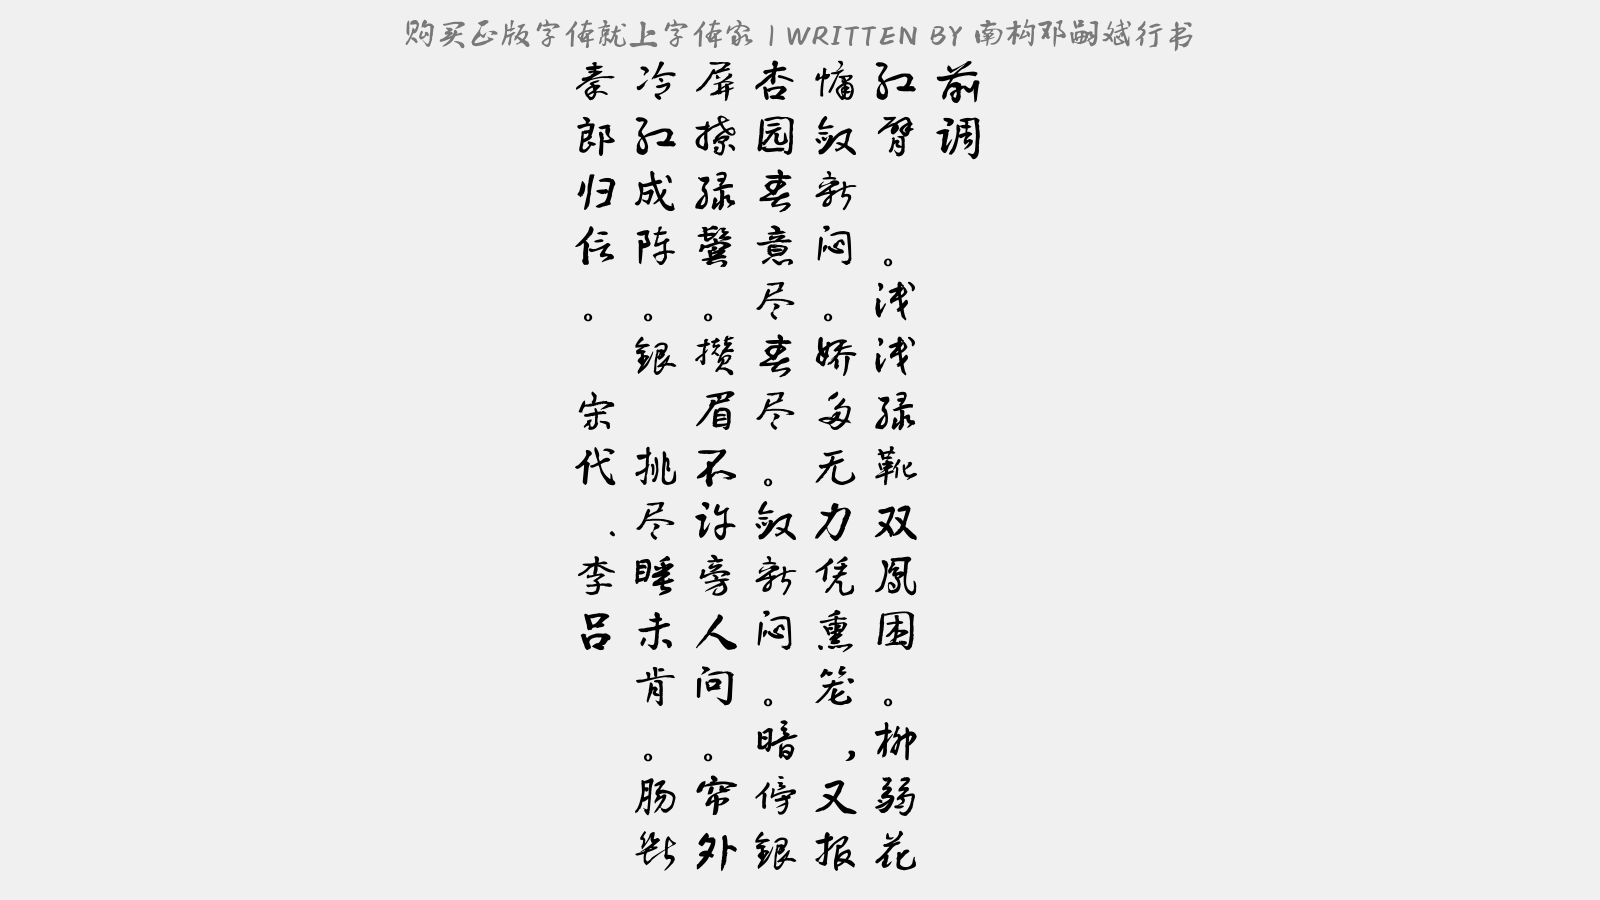 购买正版字体就上字体家 | WRITTEN BY 南构邓嗣斌行书
前调
红臂 。浅浅绿靴双凤困。柳弱花
慵敛新闷。娇多无力凭熏笼，又报
杏园春意尽春尽。敛新闷。暗傍銀
屏撩绿鬓。攒眉不许旁人问。帘外
冷红成阵。銀 挑尽睡未肯。肠断
秦郎归信。 宋代.李吕